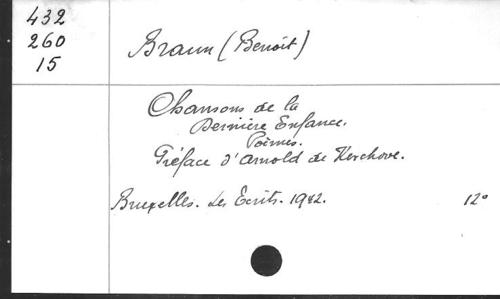 432
260
15
Braun (Benoît)
Chansons de la
Dernière Enfance.
Poèmes.
Préface d'Arnold de Kerchove.
Bruxelles. Les Ecrits. 1942.
12°